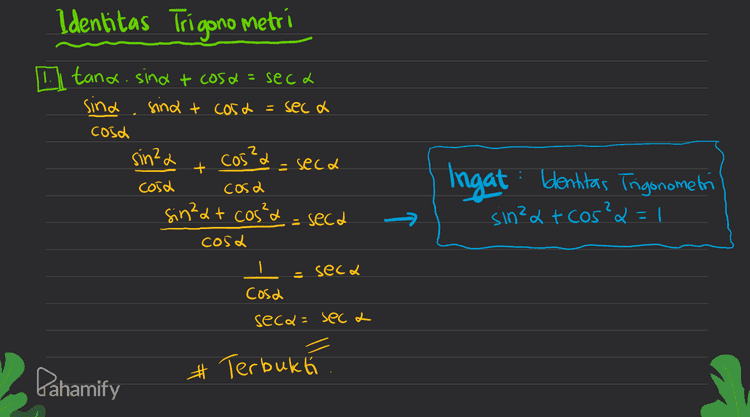 Identitas Trigonometri
1. tanα . sinα + cosα = sec α
sinα/cosα . sinα + cosα = sec α
sin²α/cosα + cos²α/cosα = sec α
sin²α + cos²α/cosα = sec α →
Ingat : Identitas Trigonometri
sin²α + cos²α = 1
1/cosα = sec α
sec α = sec α
# Terbukti.
Pahamify